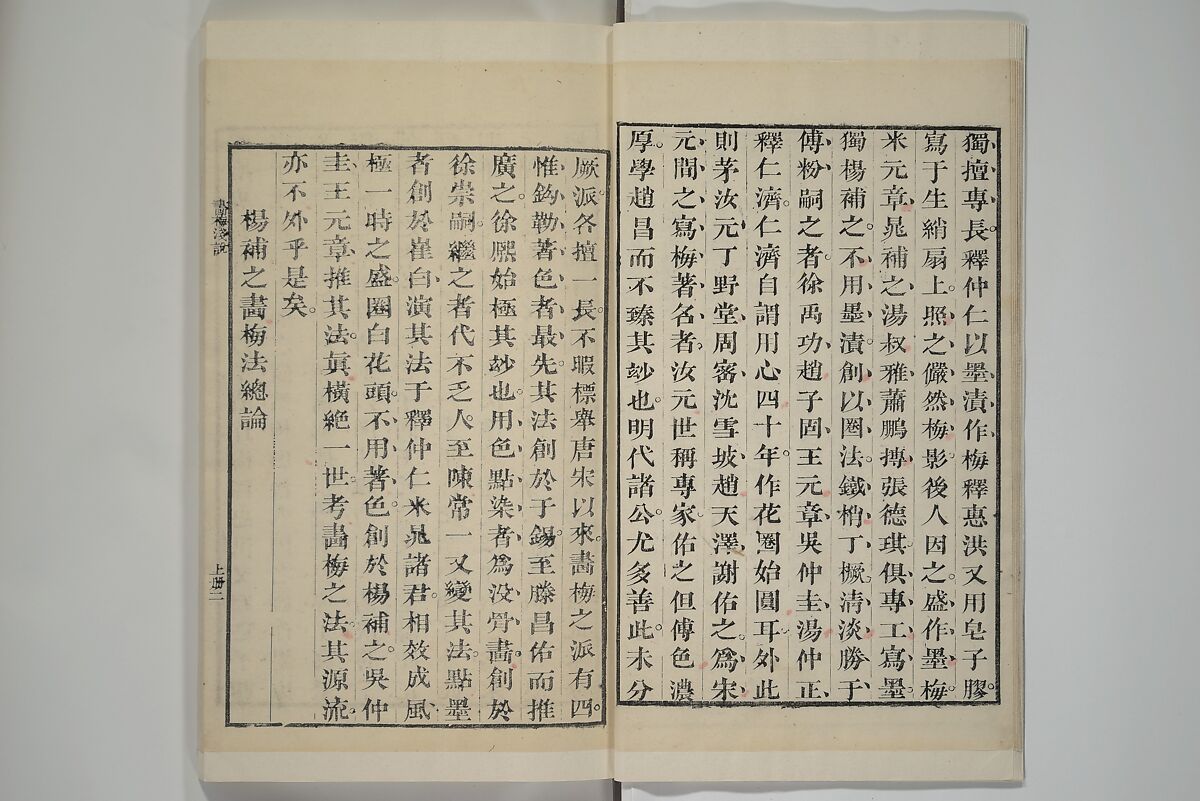 獨擅專長。釋仲仁以墨漬作梅釋惠洪又用皂子膠。
寫于生綃扇上。照之儼然梅影後人因之。盛作墨梅
米元章晁補之湯叔雅蕭鵬摶張德琪俱專工寫墨
獨楊補之。不用墨漬。創以圈法鐵梢丁橛清淡勝于
傅粉嗣之者。徐禹功趙子固王元章吳仲圭湯仲正
釋仁濟。仁濟自謂用心四十年。作花圈始圓耳。外此
則茅汝元丁野堂周密沈雪坡趙天澤謝佑之。爲宋
元間之寫梅著名者。汝元世稱專家佑之但傅色濃
厚學趙昌而不臻其玅也。明代諸公。尤多善此。未分
厥派。各擅一長。不暇標舉唐宋以來。畫梅之派有四。
惟鈎勒著色者最先。其法創於于錫。至滕昌佑而推
廣之。徐熙始極其玅也。用色點染者。爲没骨畫。創於
徐崇嗣。繼之者代不乏人。至陳常一又變其法。點墨
者創於崔白。演其法于釋仲仁米晁諸君。相效成風
極一時之盛。圈白花頭。不用著色。創於楊補之。吳仲
圭王元章推其法。眞橫絶一世。考畫梅之法。其源流。
亦不外乎是矣。
楊補之畫梅法總論
上册二